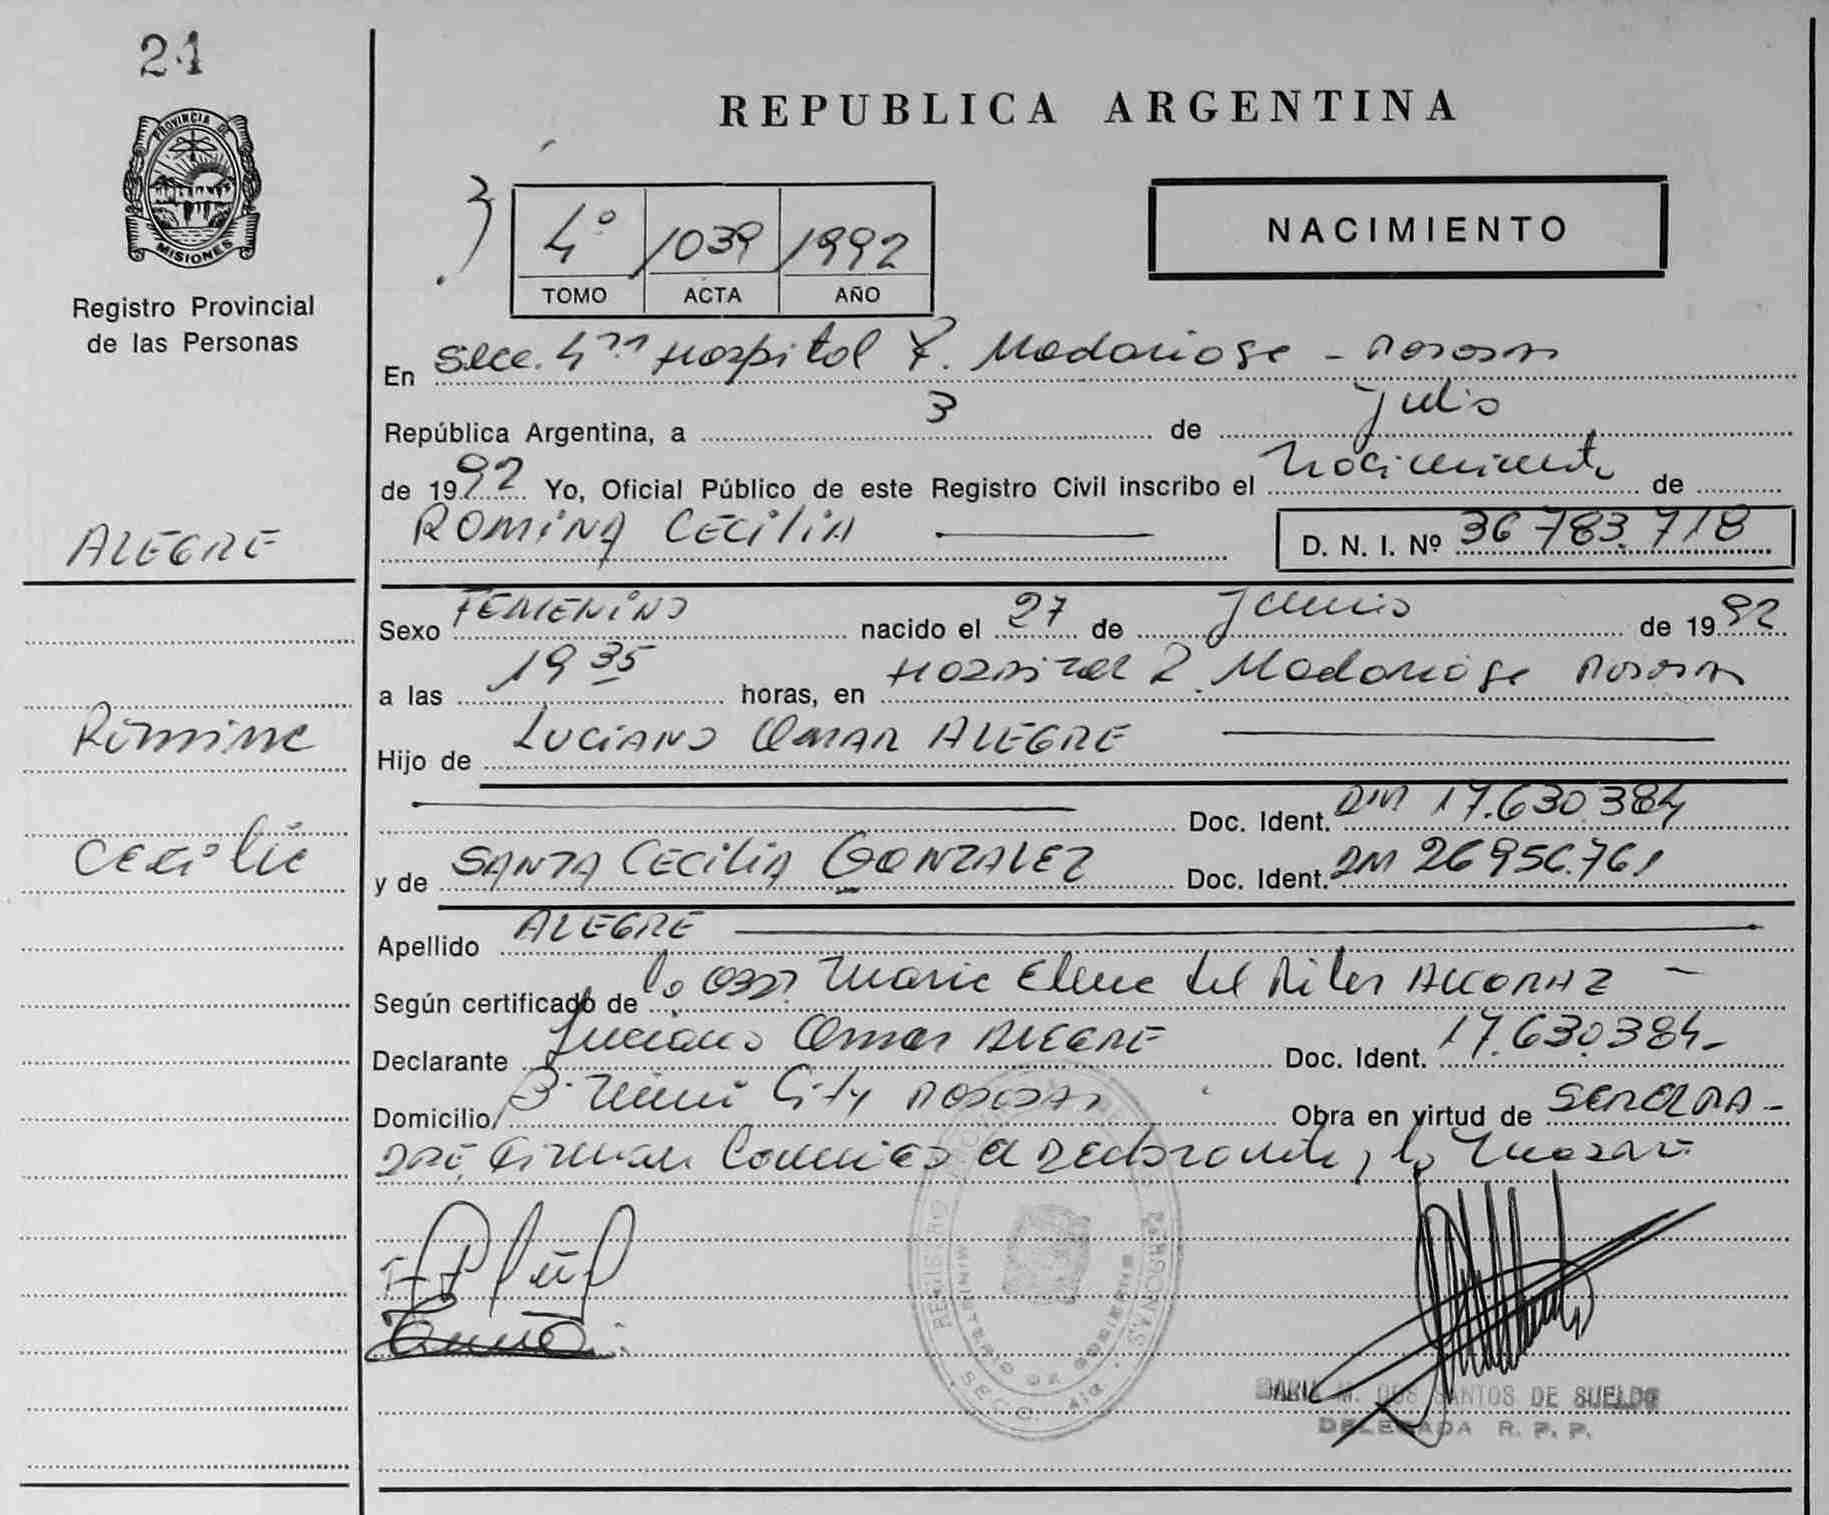 21
PROVINCIA DE
MISIONES
Registro Provincial
de las Personas
ALEGRE
Romina
Cecilia
REPUBLICA ARGENTINA
4º 1039 1992
TOMO ACTA AÑO
NACIMIENTO
En Secc. 4ta Hospital R. Madariaga - Posadas
República Argentina, a 3 de Julio
de 1992 Yo, Oficial Público de este Registro Civil inscribo el Nacimiento de
ROMINA CECILIA D. N. I. Nº 36 783.718
Sexo FEMENINO nacido el 27 de Junio de 1992
a las 19 35 horas, en Hospital R. Madariaga Posadas
Hijo de LUCIANO OMAR ALEGRE
Doc. Ident. DM 17.630.384
y de SANTA CECILIA GONZALEZ Doc. Ident. DM 26956.761
Apellido ALEGRE
Según certificado de la Obst. Maria Elena del Pilar ALCORAZ -
Declarante Luciano Omar ALEGRE Doc. Ident. 17.630.384-
Domicilio B. Mini City POSADAS Obra en virtud de SER EL PA-
DRE, firman Conmigo el Declarante, la Madre.
REGISTRO PERSONAS
MINISTERIO DE GOBIERNO
SECC. 4ta
MARIA M. DOS SANTOS DE SUELDO
DELEGADA R. P. P.